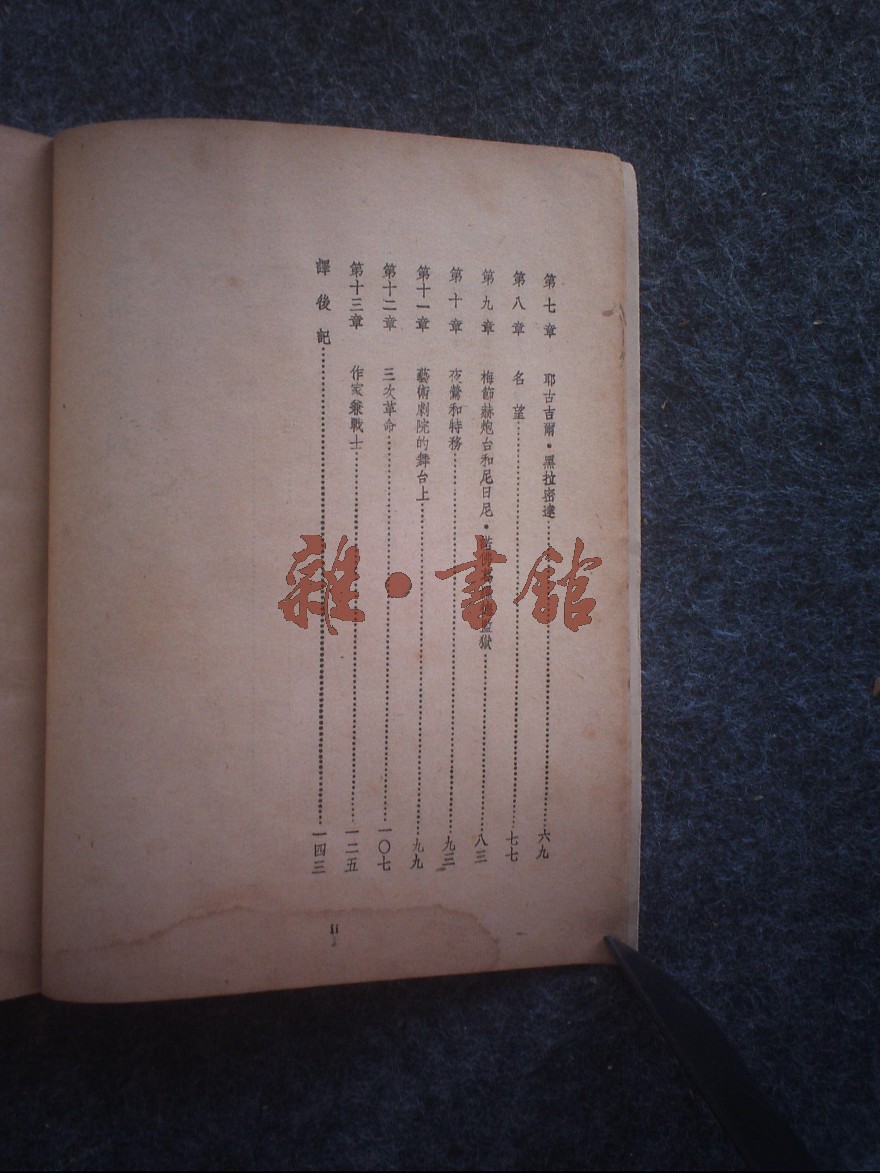 第七章 耶古吉爾·黑拉密達 六九
第八章 名望 七七
第九章 梅節赫炮台和尼日尼·諾 監獄 八三
第十章 夜鶯和特務 九三
第十一章 藝術劇院的舞台上 九九
第十二章 三次革命 一〇七
第十三章 作家兼戰士 一二五
譯後記 一四三
雜·書館